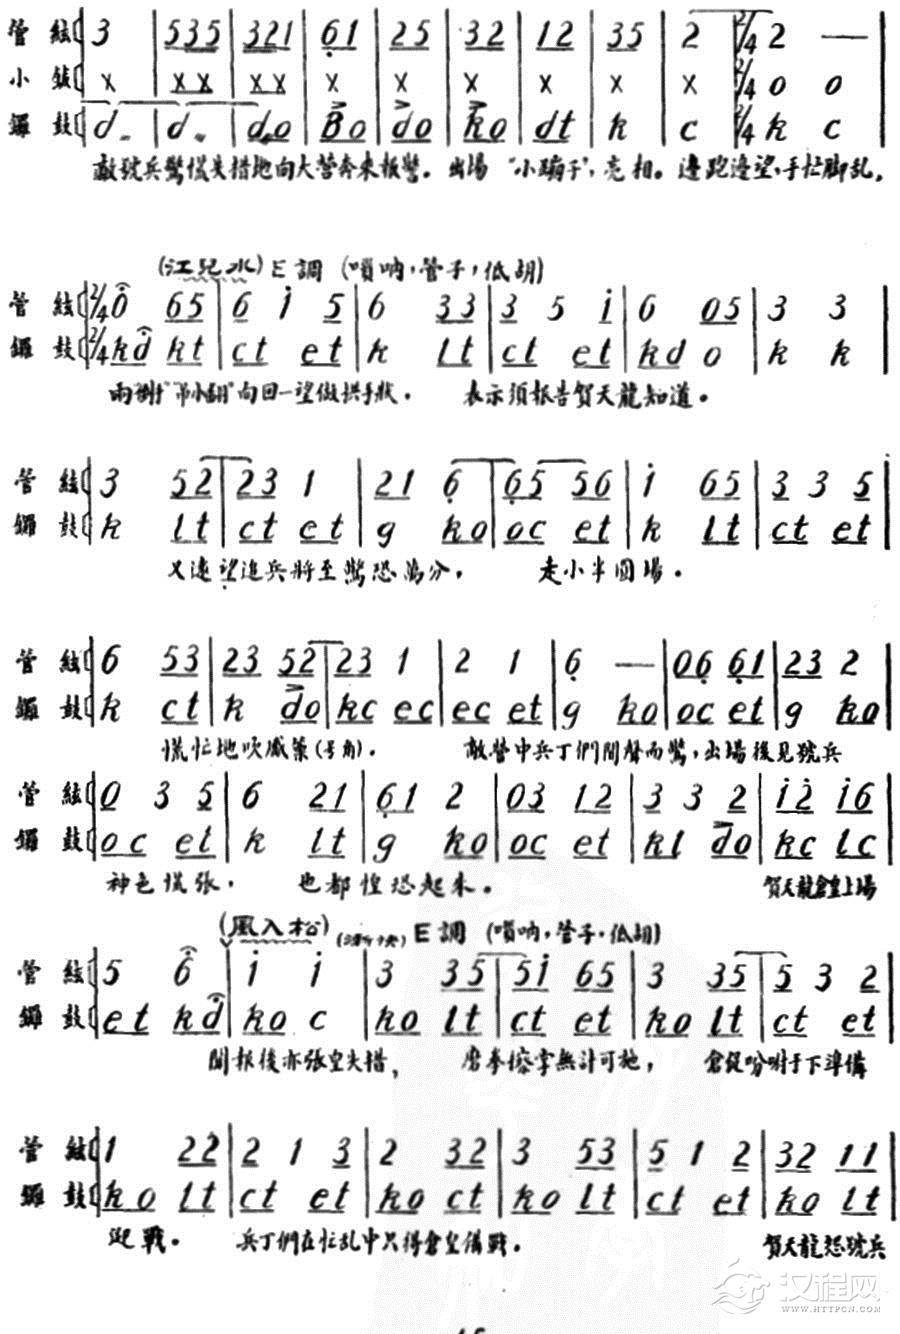 管絃 3 | 535 321 | 61 | 25 | 32 | 12 | 35 | 2 | 2/4 2 — |
小鈸 x | x x x x | x | x | x | x | x | x | 2/4 o o
鑼鼓 d.. | d.. | do | Bo | do | ko | dt | k | c | 2/4 k c
敵號兵驚慌失措地向大營奔來報警。出場“小蹦子”,亮相。邊跑邊望,手忙脚乱,
(江兒水) E調 (嗩吶,管子,低胡)
管絃 2/4 0 65 | 6 i 5 | 6 33 | 3 5 i | 6 05 | 3 3 |
鑼鼓 2/4 kd kt | ct et | k lt | ct et | kd o | k k |
向回一望做拱手狀. 表示須報告賀天龍知道。
管絃 3 52 | 23 1 | 21 6 | 65 56 | i 65 | 3 3 5 |
鑼鼓 k lt | ct et | g ko | oc et | k lt | ct et |
又遠望追兵將至驚恐萬分, 走小半圓場.
管絃 6 53 | 23 52 | 23 1 | 2 1 | 6 — | 06 61 | 23 2 |
鑼鼓 k ct | k do | kc ec | ec et | g ko | oc et | g ko |
慌忙地吹觱篥(号角). 敵營中兵丁們聞聲而驚,出場後見號兵
管絃 0 3 5 | 6 21 | 61 2 | 03 12 | 3 3 2 | i2 i6
鑼鼓 oc et | k lt | g ko | oc et | kl do | kc lc
神色慌張, 也都惶恐起來. 賀天龍倉皇上場
(風入松) E調 (嗩吶,管子.低胡)
管絃 5 6 | i i | 3 35 | 5i 65 | 3 35 | 5 3 2
鑼鼓 et kd | ko c | ko lt | ct et | ko lt | ct et
聞報後亦張皇失措, 磨拳擦掌無計可施, 倉促吩咐手下準備
管絃 1 22 | 2 1 3 | 2 32 | 3 53 | 5 1 2 | 32 11 |
鑼鼓 ko lt | ct et | ko ct | ko lt | ct et | ko lt |
迎戰. 兵丁們在忙乱中只得倉皇備戰. 賀天龍怒號兵
汉程网
WWW.HTTPCN.COM